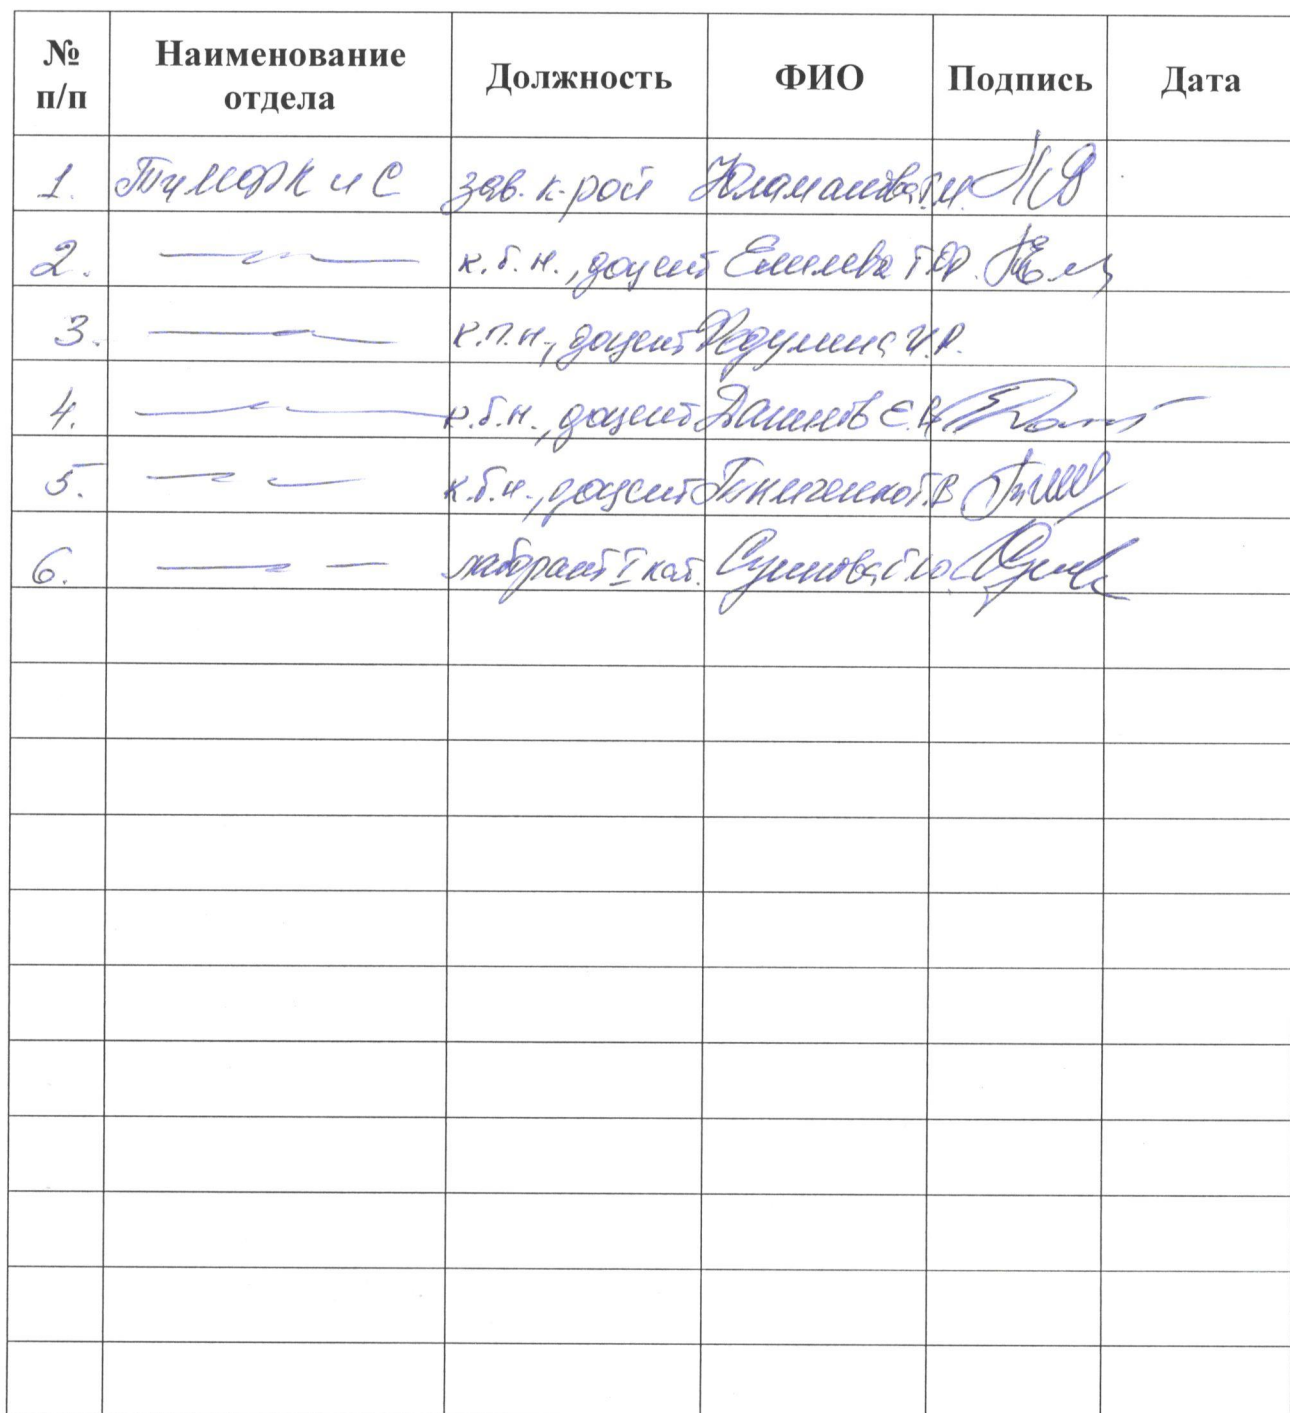 № п/п Наименование отдела Должность ФИО Подпись Дата
1. ТиМФК и С зав. к-рой Юламанова Г.М.
2. — к.б.н., доцент Емелева Т.Ф.
3. — к.п.н., доцент Федулина И.Р.
4. — к.б.н., доцент Данилов Е.В.
5. — к.б.н., доцент Т.В.
6. — лаборант I кат.